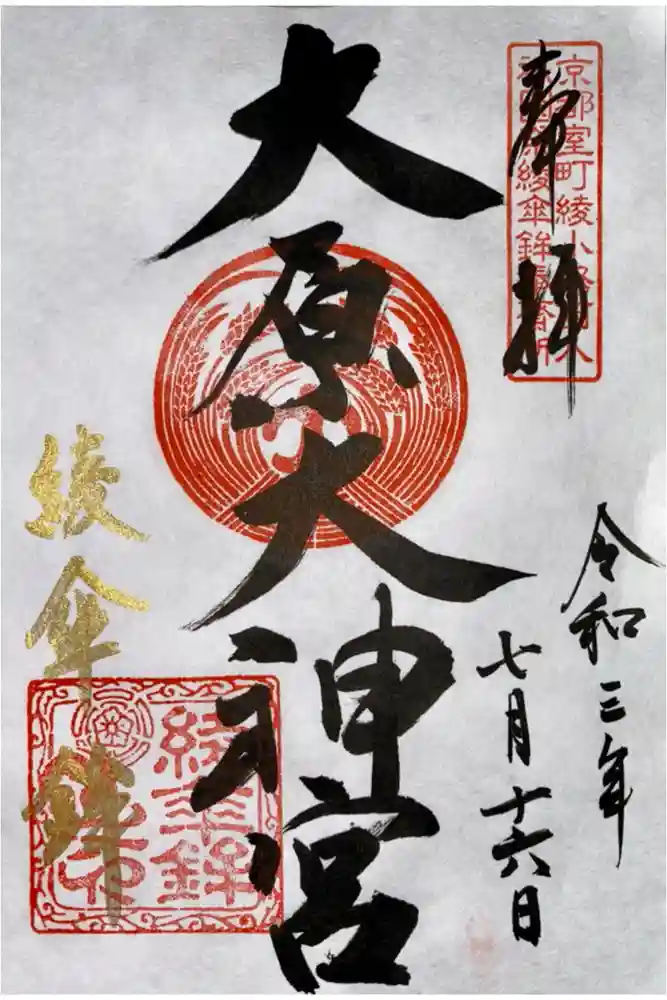 奉拝
京都室町綾小路
綾傘鉾
令和三年
七月十六日
大原大神宮
綾傘鉾
綾傘鉾